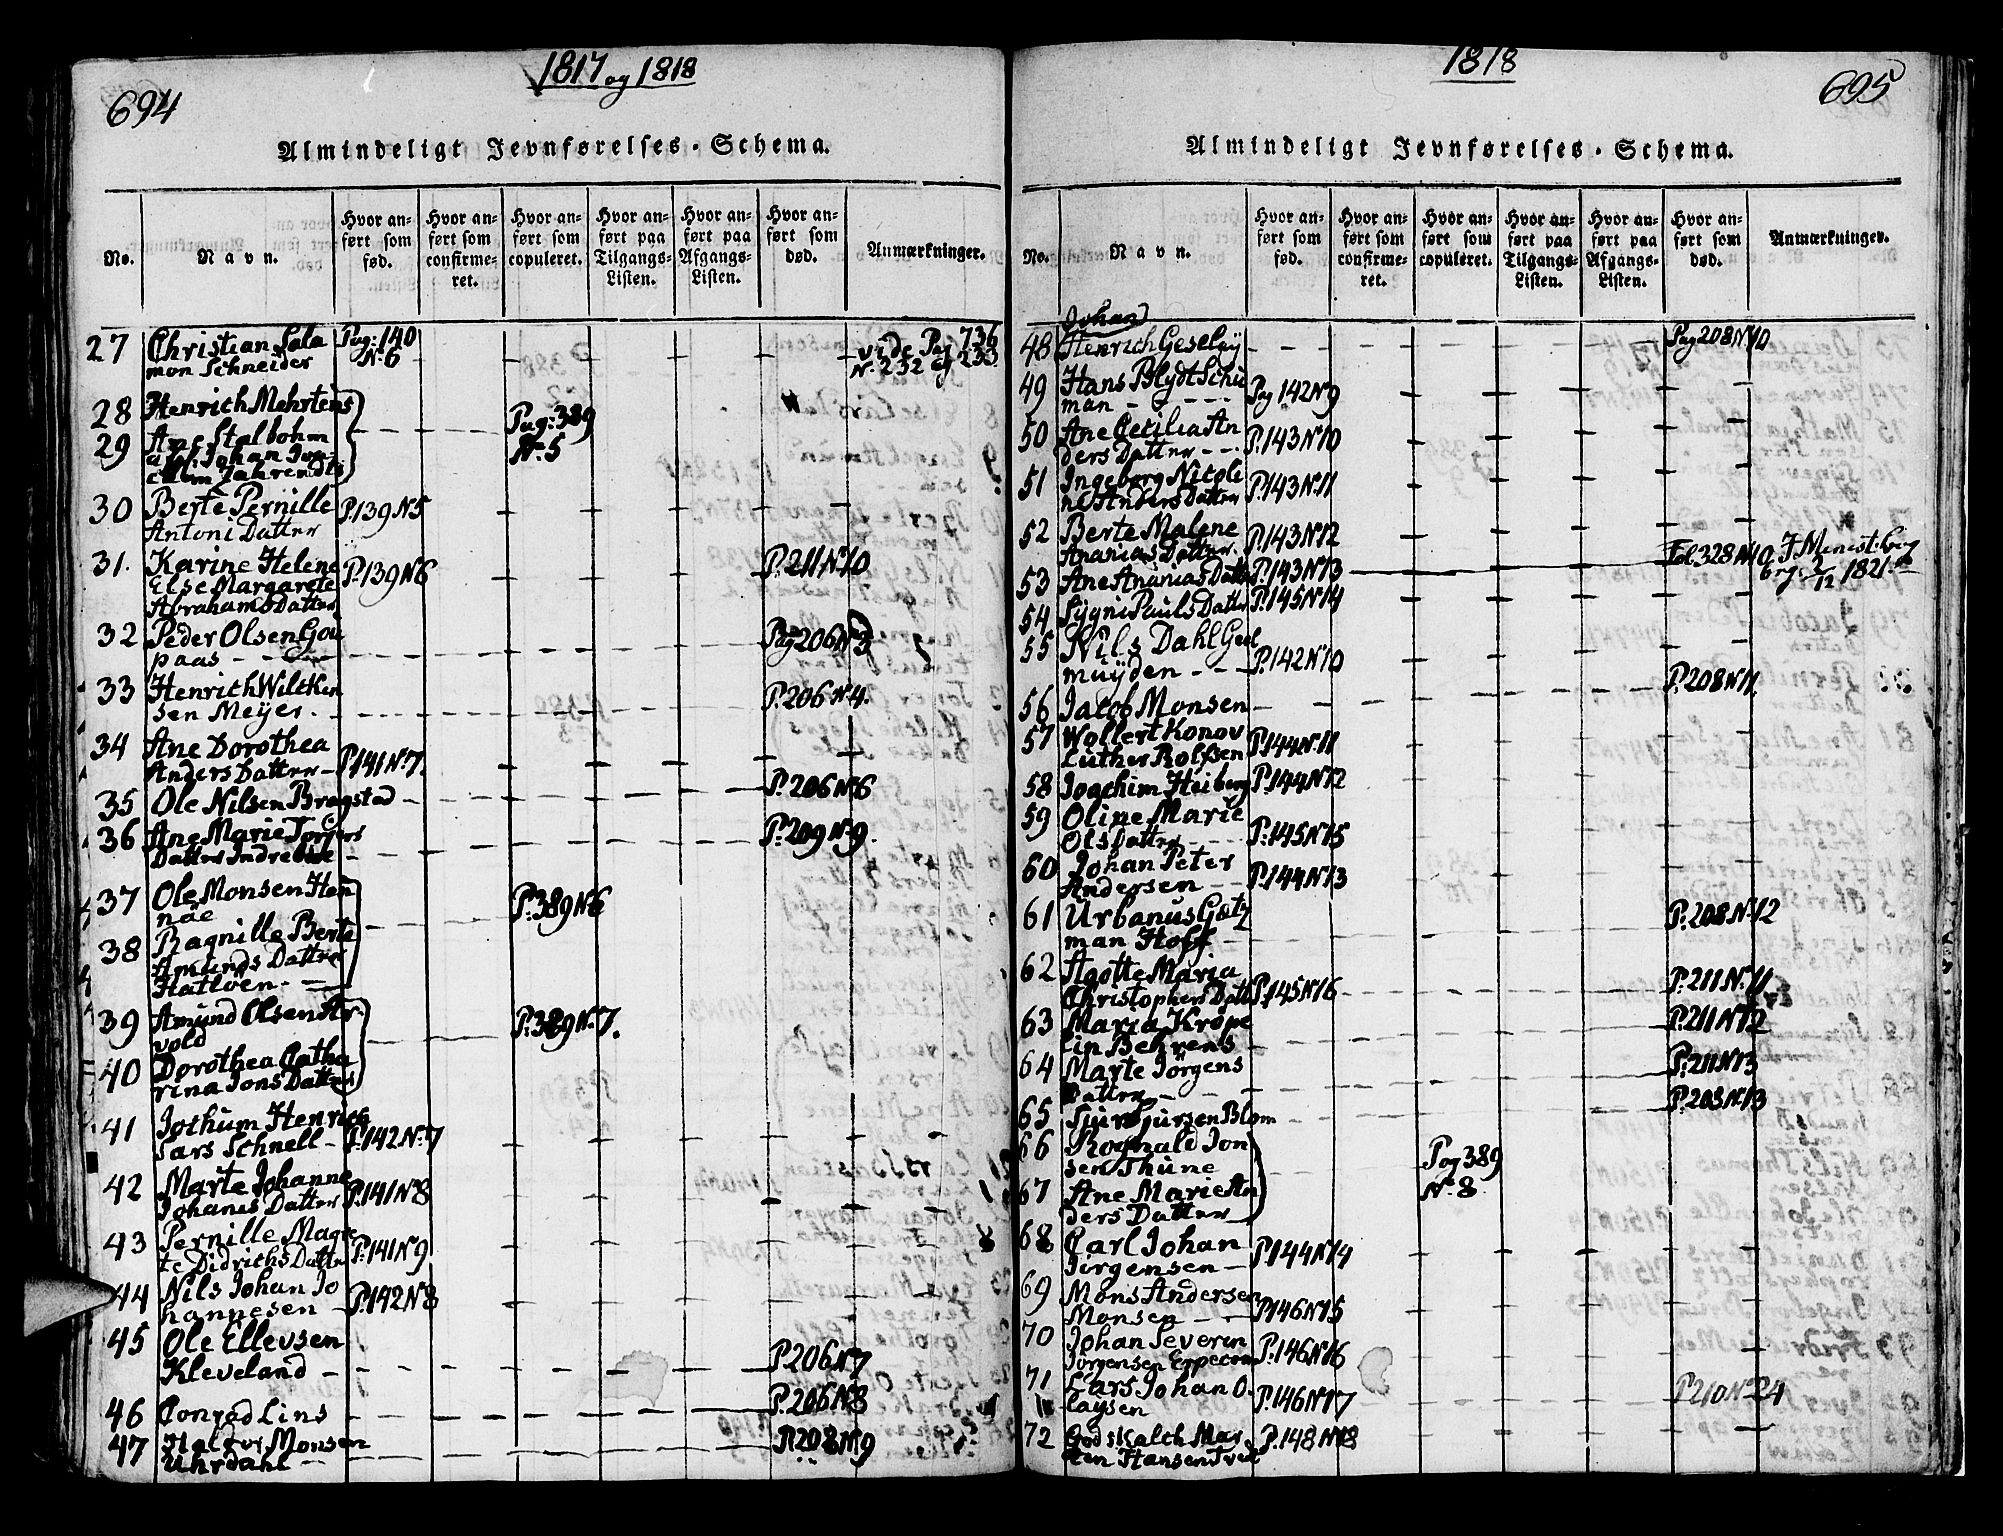 694
1817 og 1818
Almindeligt Jevnførelses-Schema.
No.
Navn.
Hvor anført som fød.
Hvor anført som confirmeret.
Hvor anført som copuleret.
Hvor anført paa Tilgangs-Listen.
Hvor anført paa Afgangs-Listen.
Hvor anført som død.
Anmærkninger.
27 Christian Salo Pag: 140 vide Pag 736
mon Schneider N. 6 N. 232 og 233
28 Henrich Mehrtens Pag: 389
29 Ane Stalbohm N. 5
30 Berte Pernille P. 139 N 5
Antoni Datter
31. Karine Helene P. 211 N 10
Else Margarete P. 139 N 6
Abrahams Datter
32 Peder Olsen Gou Pag 206 N 3
paas
33 Henrich Wiltken P. 206 N. 4.
sen Meÿer.
34 Ane Dorothea
Anders Datter P. 141 N. 7.
35 Ole Nilsen Bragstad P. 206 N 6
36 Ane Marie Torgers P. 209 N. 9.
Datter Indreboe
37 Ole Monsen Hen P. 389 N 6
näe
38 Ragnille Berte
Amunds Datter
Hatlöen
39 Amund Olsen Ar P. 389 N. 7.
vold
40 Dorothea Catha
rina Jons Datter
41 Jochum Henrich
Sars Schnell P. 142 N. 7
42 Marte Johanne
Johanes Datter P. 141 N 8
43 Pernille Magre
te Didrichs Datter P. 141 N 9
44 Nils Johan Jo
hannesen P. 142 N 8
45 Ole Ellevsen
Kleveland P. 206 N 7
46 Conrad Lins P. 206 N 8
47 Halvor Monsen P. 208 N 9
Uhrdahl
1818
695
Almindeligt Jevnførelses-Schema.
No.
Navn.
Hvor anført som fød.
Hvor anført som confirmeret.
Hvor anført som copuleret.
Hvor anført paa Tilgangs-Listen.
Hvor anført paa Afgangs-Listen.
Hvor anført som død.
Anmærkninger.
Johan
48 Henrich Geselaÿ Pag 208 N 10
49 Hans Blydt Schu
man Pag 142 N 9
50 Ane Cecilia An
ders Datter P. 143 N 10
51 Ingeborg Nicoli
ne Anders Datter P. 143 N 11
52 Berte Malene
Ananias Datter P. 143 N 12
53 Ane Ananias Datter P. 143 N 13 Fol 328 N 10 1821
54 Sÿgni Pauls Datter P. 145 N 14
55 Nils Dahl Geel
muÿden P. 142 N 10
56 Jacob Monsen P. 208 N 11.
57 Wollert Konov
Luther Rolfsen P. 144 N 11
58 Joachim Heiberg P. 144 N 12
59 Oline Marie
Ols Datter P. 145 N 15
60 Johan Peter
Andersen P. 144 N 13
61 Urbanus Götz P. 208 N 12
man Hoff
62 Agotte Maria P. 211 N. 11
Christophers Datter P. 145 N 16
63 Maria Krope P. 211 N 12
lin Behrens
64 Marte Jörgens P. 211 N 13
Datter
65 Siur Siursen Blom P. 208 N 13
66 Rognald Jon Pag 389
sen Thune N. 8
67 Ane Marie An
ders Datter
68 Carl Johan
Jörgensen P. 144 N 14
69 Mons Andersen
Monsen P. 146 N 15
70 Johan Severin
Jörgensen P. 146 N 16
71 Lars Johan O. P. 210 N 24
laysen P. 146 N 17
72 Godskalch Mar P. 148 N 18
ten Hansen Tved